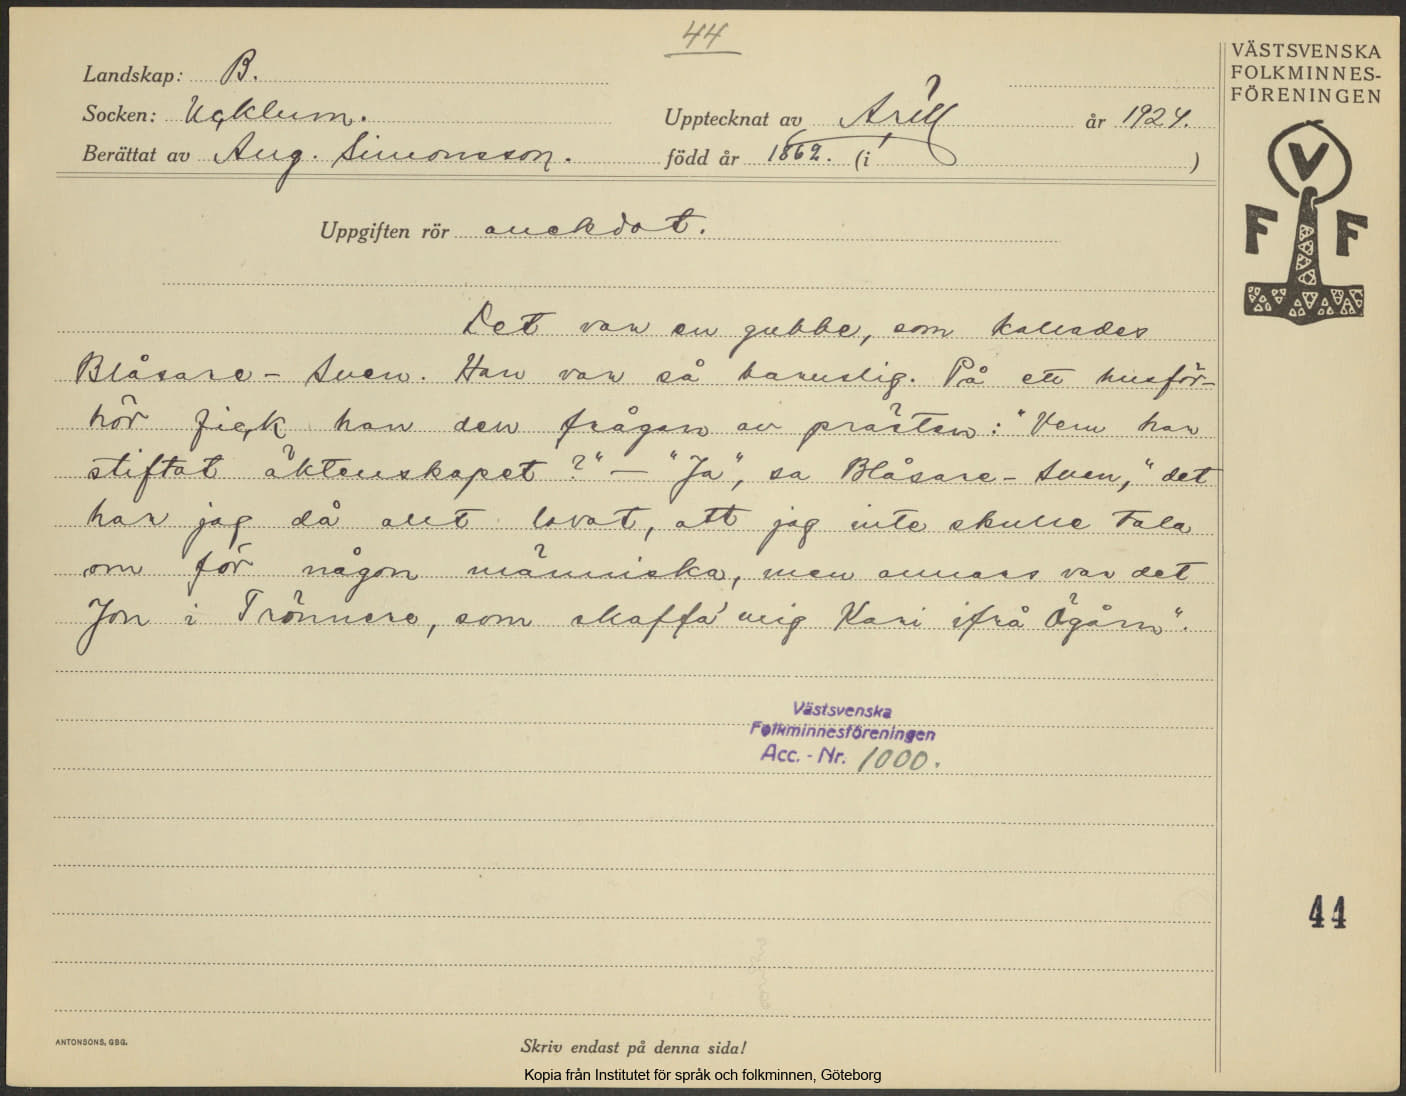 44
VÄSTSVENSKA
FOLKMINNES-
FÖRENINGEN
Landskap: B.
Socken: Ucklum.
Upptecknat av Arill år 1924.
Berättat av Aug. Simonsson. född år 1862. (i )
V
F F
Uppgiften rör anekdot.
Det var en gubbe, som kallades
Blåsare-Sven. Han var så barnslig. På ett husför-
hör fick han den frågan av prästen: "Vem har
stiftat äktenskapet?" — "Ja", sa Blåsare-Sven, "det
har jag då allt lovat, att jag inte skulle tala
om för någon människa, men annars var det
Jon i Trönnere, som skaffa' mig Kari ifrå Ögårn".
Västsvenska
Folkminnesföreningen
Acc. - Nr. 1000.
44
ANTONSONS, GBG.
Skriv endast på denna sida!
Kopia från Institutet för språk och folkminnen, Göteborg